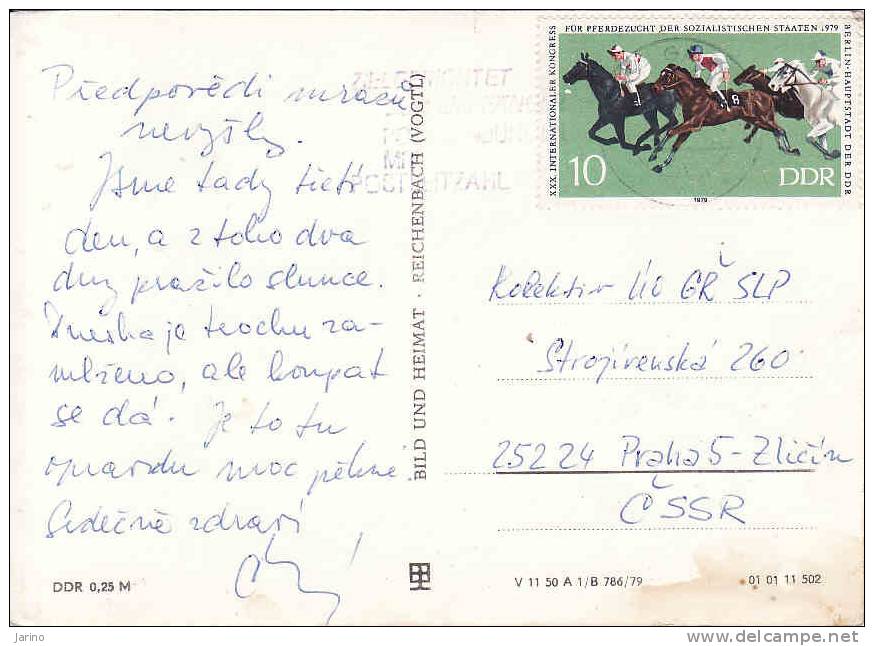 Předpovědi mrazů
nevyšly.
Jsme tady třetí
den, a z toho dva
dny pražilo slunce.
Dneska je trochu za-
mlženo, ale koupat
se dá. Je to tu
opravdu moc pěkné.
Srdečně zdraví
DDR 0,25 M
BILD UND HEIMAT · REICHENBACH (VOGTL)
FÜR PFERDEZUCHT DER SOZIALISTISCHEN STAATEN 1979
XXX. INTERNATIONALER KONGRESS
BERLIN-HAUPTSTADT DER DDR
8
10
DDR
1979
POSTLEITZAHL
Kolektiv ÚO GŘ SLP
Strojírenská 260
25224 Praha 5-Zličín
ČSSR
V 11 50 A 1/B 786/79
01 01 11 502
Jarino
www.delcampe.net